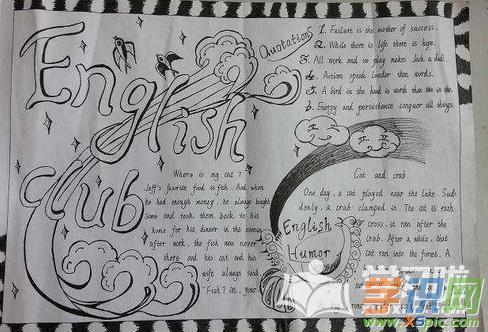 English
Club
Quotations
1. Failure is the mother of success.
2. While there is life there is hope.
3. All work and no play makes Jack a dull.
4. Actions speak louder than words.
5. A bird in the hand is worth than two in the
6. Energy and persistence conquer all things.
Where is my cat?
Jeff's favorite food is fish. And when
he had enough money, he always bought
some and took them back to his
home for his dinner in the evening
after work, the fish was never
there and his cat and his
wife always said,
"Fish? Oh, your
English
Humor
Cat and crab
One day, a cat played near the lake. Sud-
denly, a crab clamped it. The cat is rath
cross, it ran after the
crab. After a while, that
cat ran into the forest. A
学识网
www.x5pic.com